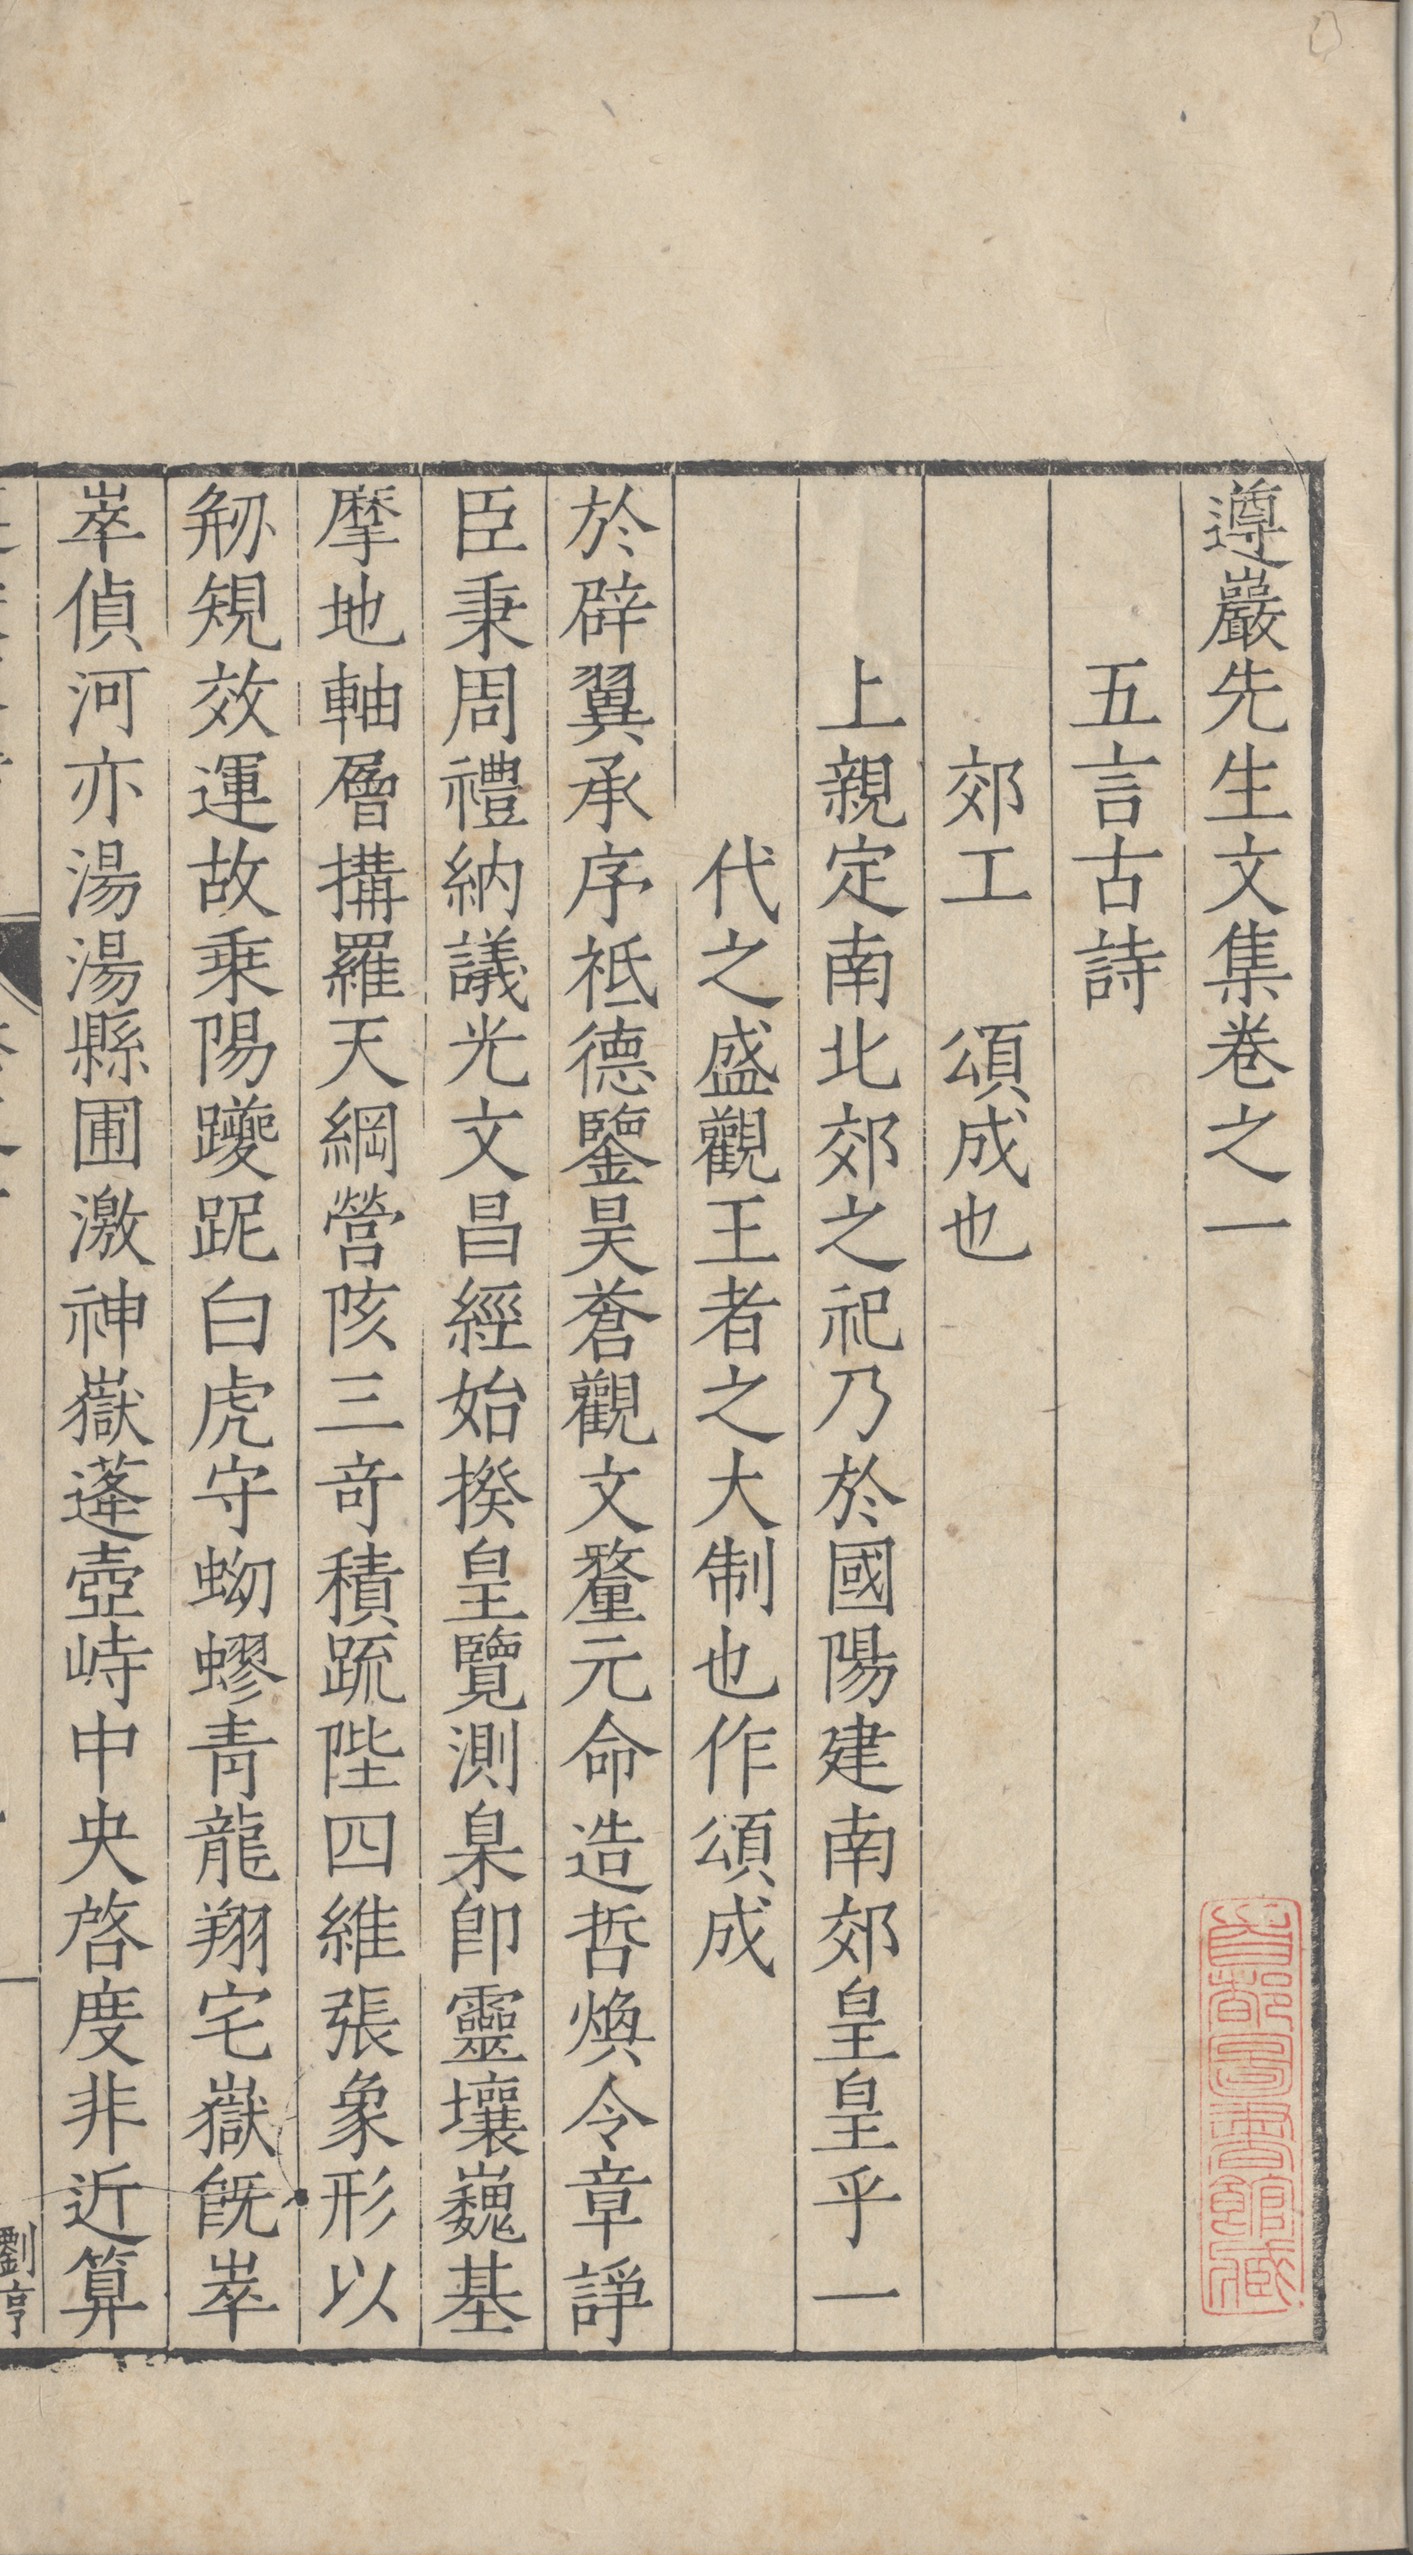 遵巖先生文集卷之一
五言古詩
郊工　頌成也
上親定南北郊之祀乃於國陽建南郊皇皇乎一
代之盛觀王者之大制也作頌成
於辟翼承序祗德鑒昊蒼觀文釐元命造哲煥令章諍
臣秉周禮納議光文昌經始揆皇覽測臬卽靈壤巍基
摩地軸層搆羅天綱營陔三竒積䟽陛四維張象形以
剏䂓效運故乗陽躨跜白虎守蚴蟉青龍翔宅嶽旣崒
崒傎河亦湯湯縣圃激神嶽蓬壺峙中央啓度非近算
劉亨
首都圖書館藏